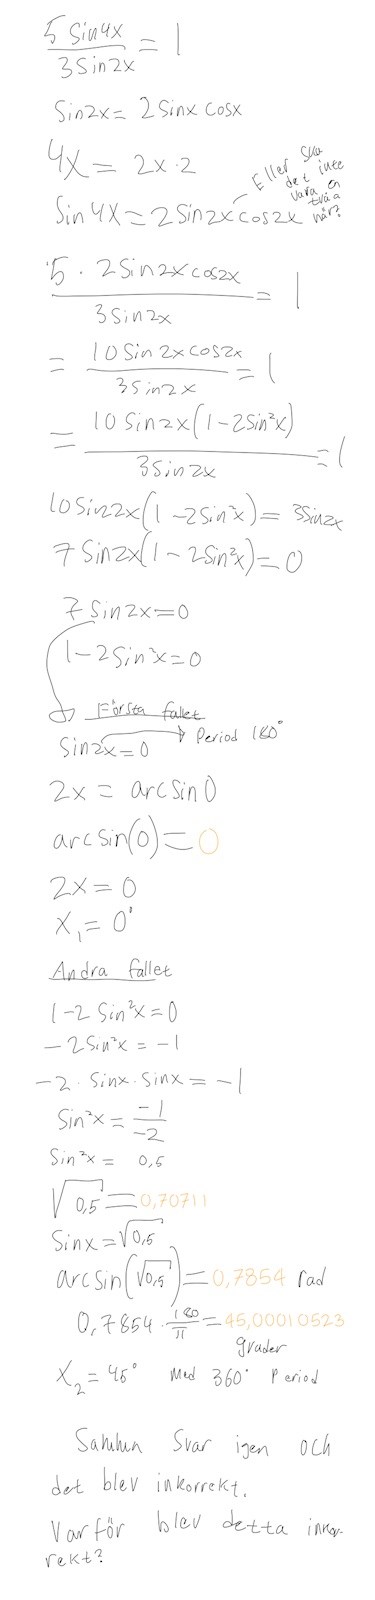 5 Sin4x / 3Sin2x = 1
Sin2x = 2Sinx cosx
4x = 2x·2
Sin4x = 2Sin2xcos2x
Eller ska
det inte
vara en
tvåa
här?
5 · 2Sin2xcos2x / 3Sin2x = 1
= 10Sin2xcos2x / 3Sin2x = 1
= 10Sin2x(1-2Sin²x) / 3Sin2x = 1
10Sin2x(1-2Sin²x) = 3Sin2x
7Sin2x(1-2Sin²x) = 0
7Sin2x=0
1-2Sin²x=0
Första fallet
Sin2x=0 → Period 180°
2x = arcsin0
arcsin(0) = 0
2x = 0
x₁ = 0°
Andra fallet
1-2Sin²x=0
-2Sin²x = -1
-2 · Sinx · Sinx = -1
Sin²x = -1/-2
Sin²x = 0,5
√0,5 = 0,70711
Sinx = √0,5
arcsin(√0,5) = 0,7854 rad
0,7854 · 180/π = 45,00010523
grader
x₂ = 45° Med 360° Period
Svar igen och
det blev inkorrekt.
Varför blev detta inkor-
rekt?